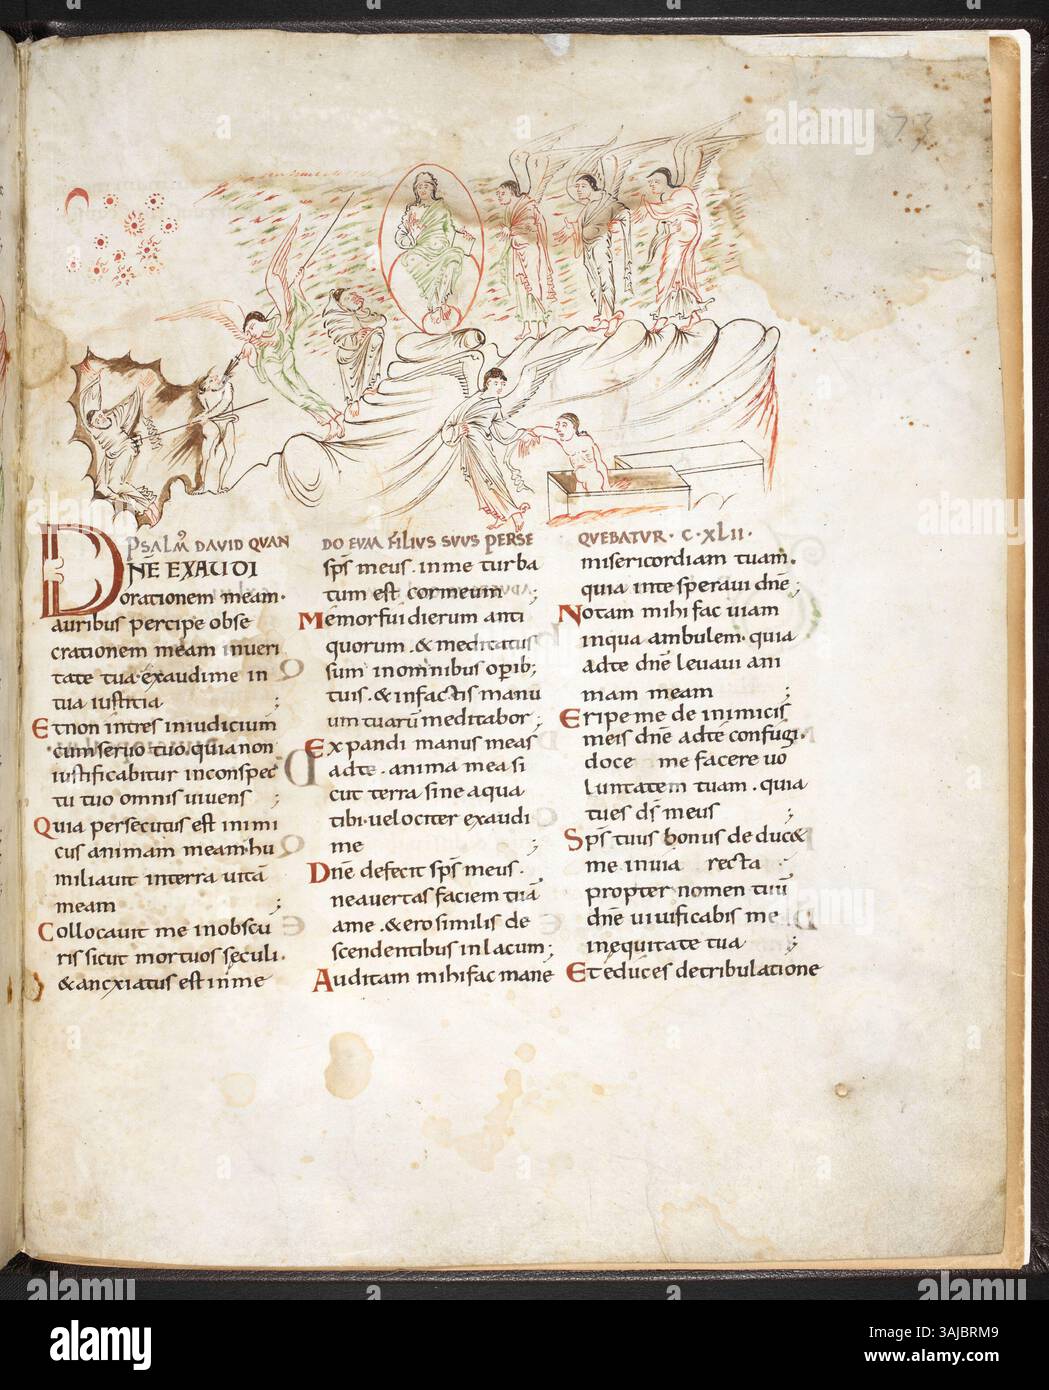 73
PSALM̄ DAVID QUAN DO EUM FILIUS SUUS PERSE QUEBATUR · C · XLII ·
DN̄E EXAUDI
orationem meam·
auribus percipe obse
crationem meam inueri
tate tua· exaudime in
tua iustitia ;
Et non intres iniudicium
cum seruo tuo· quia non
iustificabitur inconspec
tu tuo omnis uiuens ;
Quia persecutus est inimi
cus animam meam· hu
miliauit interra uitā
meam ;
Collocauit me inobscu
ris sicut mortuos seculi·
& anxiatus est inme
sp̄s meus · inme turba
tum est cor meum ;
Memor fui dierum anti
quorum · & meditatus
sum inomnibus operib;
tuis · & infactis manu
um tuarū meditabor ;
Expandi manus meas
adte · anima mea si
cut terra sine aqua
tibi· uelociter exaudi
me ;
Dn̄e defecit sp̄s meus ·
ne auertas faciem tuā
ame · & ero similis de
scendentibus in lacum ;
Auditam mihi fac mane
misericordiam tuam·
quia inte speraui dn̄e ;
Notam mihi fac uiam
inqua ambulem· quia
adte dn̄e leuaui ani
mam meam ;
Eripe me de inimicis
meis dn̄e adte confugi·
doce me facere uo
luntatem tuam · quia
tu es ds̄ meus ;
Sp̄s tuus bonus deduc&
me inuia recta ·
propter nomen tuū
dn̄e uiuificabis me
inequitate tua ;
Et educes detribulatione
alamy
Image ID: 3AJBRM9
www.alamy.com